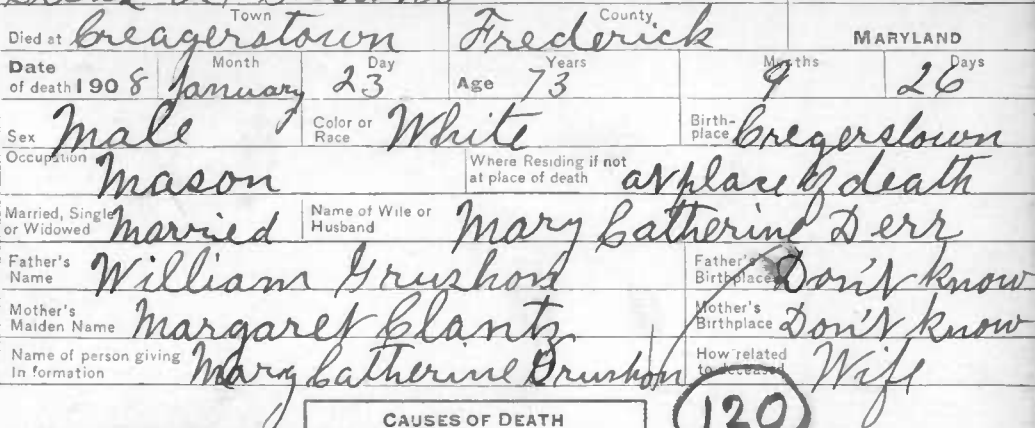 Town County
Died at Creagerstown Frederick MARYLAND
Date of death 1908 Month January Day 23 Age Years 73 Months 9 Days 26
Sex Male Color or Race White Birth-place Cregerstown
Occupation Mason Where Residing if not at place of death at place of death
Married, Single or Widowed Married Name of Wife or Husband Mary Catherine Derr
Father's Name William Grushon Father's Birthplace Don't know
Mother's Maiden Name Margaret Clantz Mother's Birthplace Don't know
Name of person giving Information Mary Catherine Grushon How related to deceased Wife
CAUSES OF DEATH 120